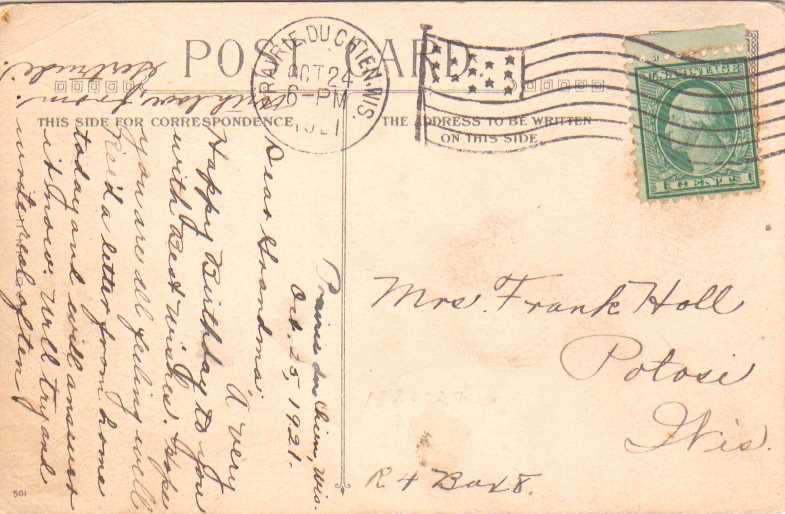 POST CARD
PRAIRIE DU CHIEN, WIS.
OCT 24
6-PM
1921
THIS SIDE FOR CORRESPONDENCE
THE ADDRESS TO BE WRITTEN
ON THIS SIDE
U.S. POSTAGE
1 CENT 1
Prairie du Chien, Wis.
Oct. 25, 1921.
Dear Grandma
A very
Happy Birthday to you
with Best Wishes. Hope
you are all feeling well
Rec'd a letter from home
today and will answer
it now. Will try and
write real often
With love from.
Gertrude.
Mrs. Frank Holl
Potosi
Wis.
R 4 Box 8.
501